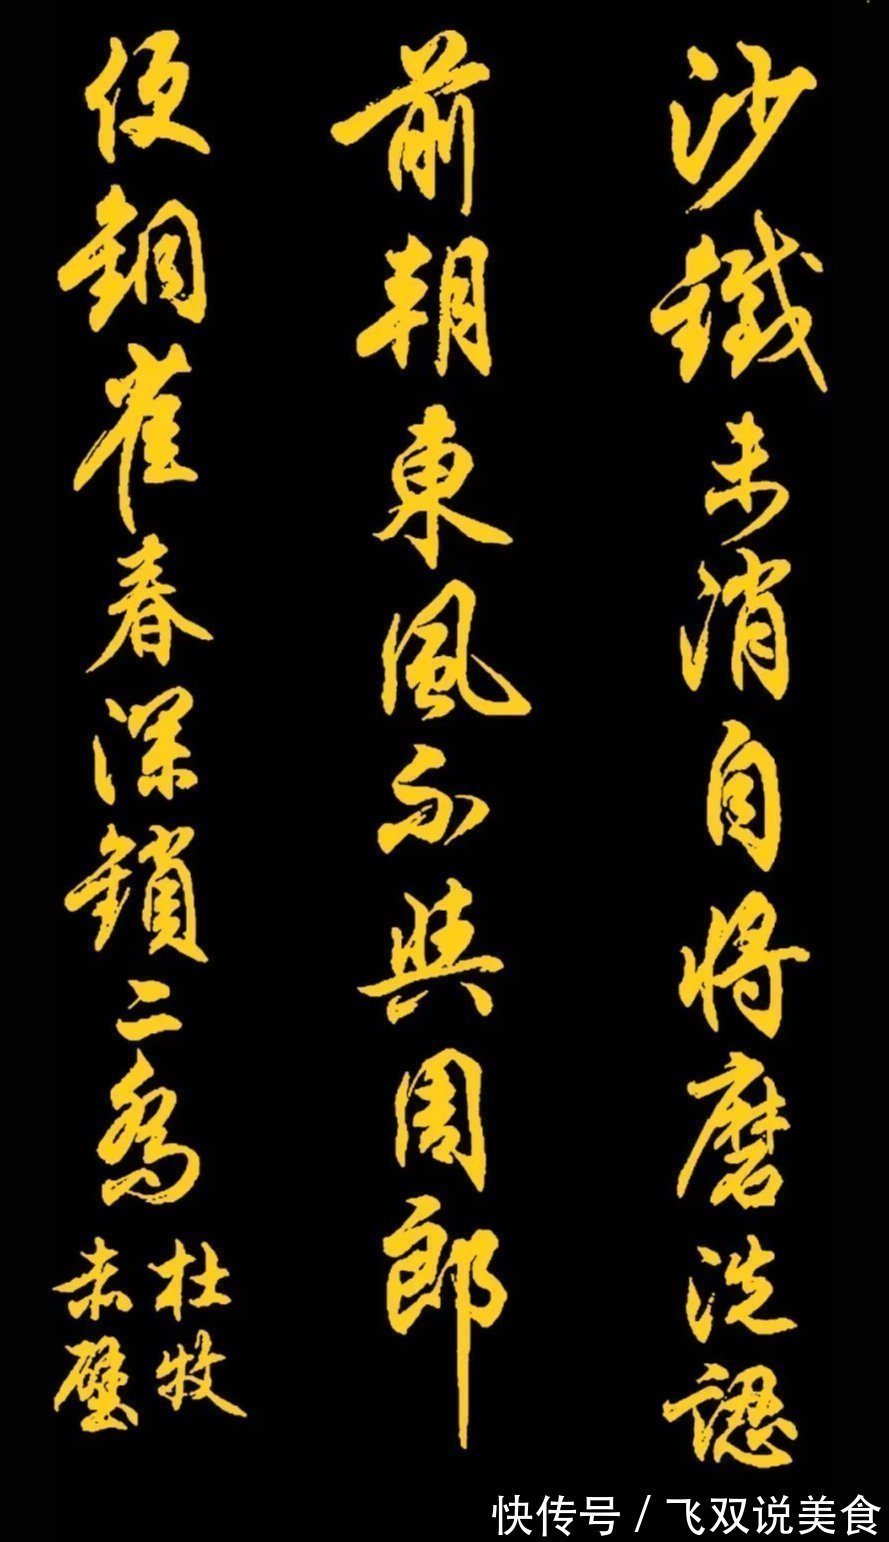 沙鐵未消自將磨洗認
前朝東風不與周郎
便銅雀春深鎖二喬
杜牧
赤壁
快传号 / 飞双说美食